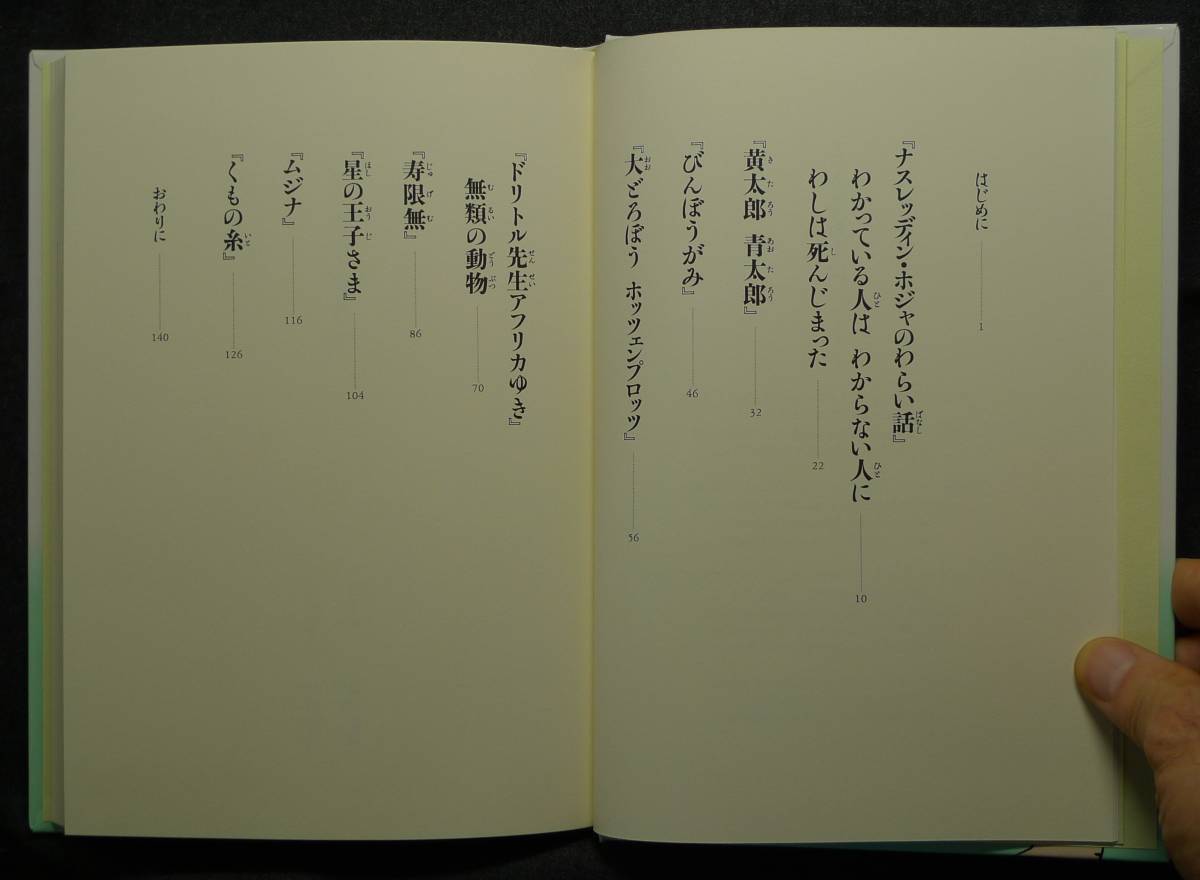 はじめに 1
『ナスレッディン・ホジャのわらい話』
わかっている人は わからない人に 10
わしは死んじまった 22
『黄太郎 青太郎』 32
『びんぼうがみ』 46
『大どろぼう ホッツェンプロッツ』 56
『ドリトル先生アフリカゆき』
無類の動物 70
『寿限無』 86
『星の王子さま』 104
『ムジナ』 116
『くもの糸』 126
おわりに 140